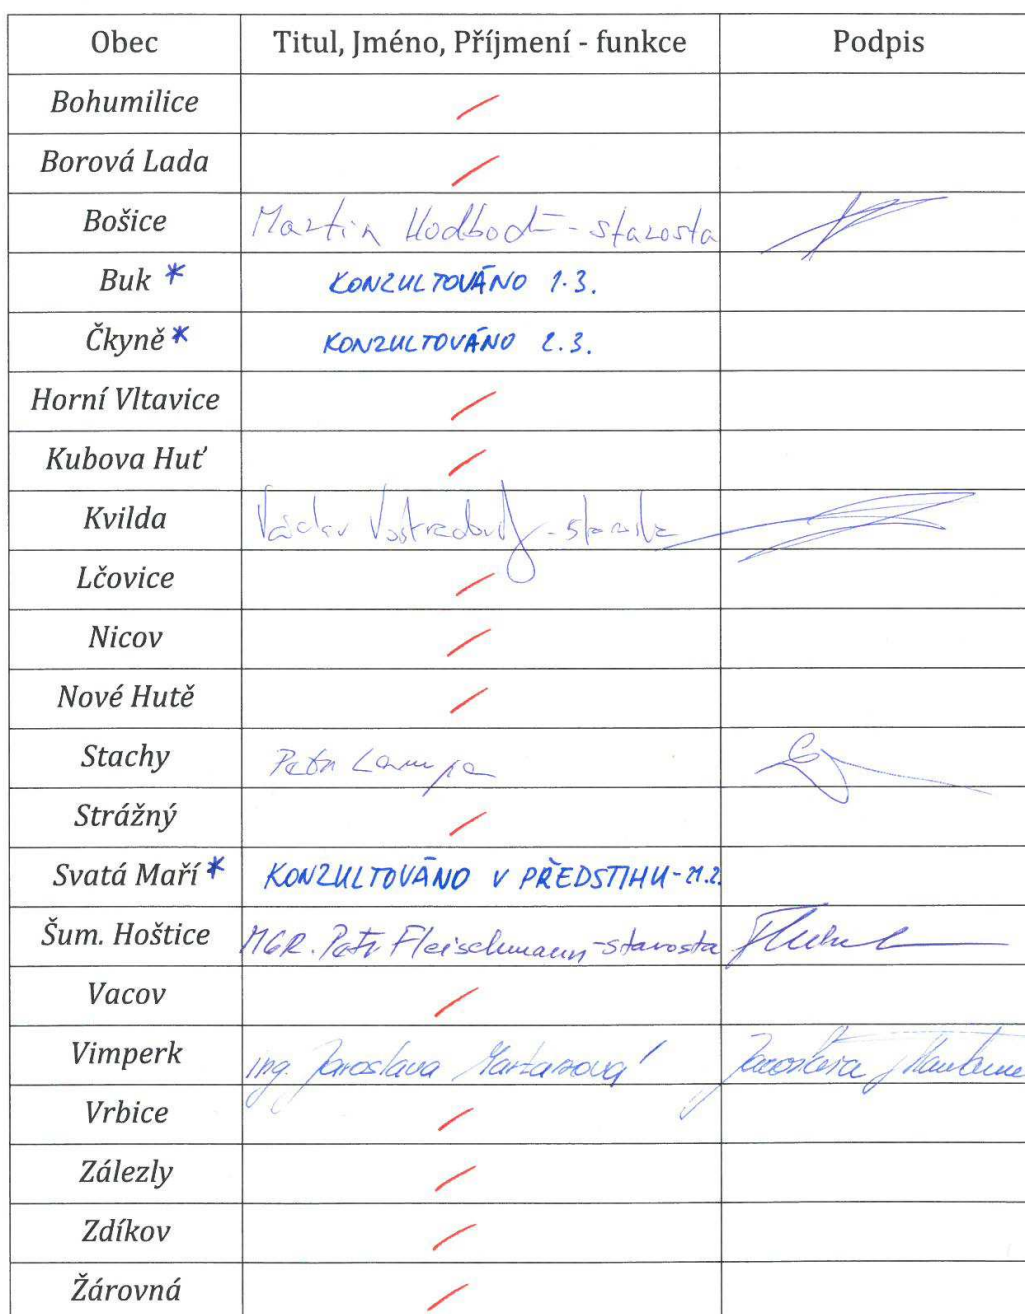 Obec Titul, Jméno, Příjmení - funkce Podpis
Bohumilice
Borová Lada
Bošice Martin Hodboď - starosta
Buk * KONZULTOVÁNO 1.3.
Čkyně * KONZULTOVÁNO 2.3.
Horní Vltavice
Kubova Huť
Kvilda Václav Vostradovský - starosta
Lčovice
Nicov
Nové Hutě
Stachy Petr Lampa
Strážný
Svatá Maří * KONZULTOVÁNO V PŘEDSTIHU - 21.2.
Šum. Hoštice MGR. Petr Fleischmann - starosta
Vacov
Vimperk Ing. Jaroslava Martanová Jaroslava
Vrbice
Zálezly
Zdíkov
Žárovná